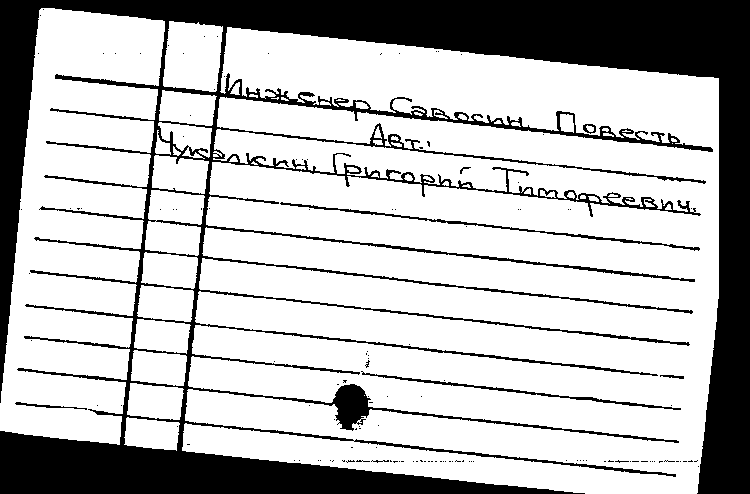 Инженер Савосин. Повесть.
Авт.:
Чукалкин, Григорий Тимофеевич.